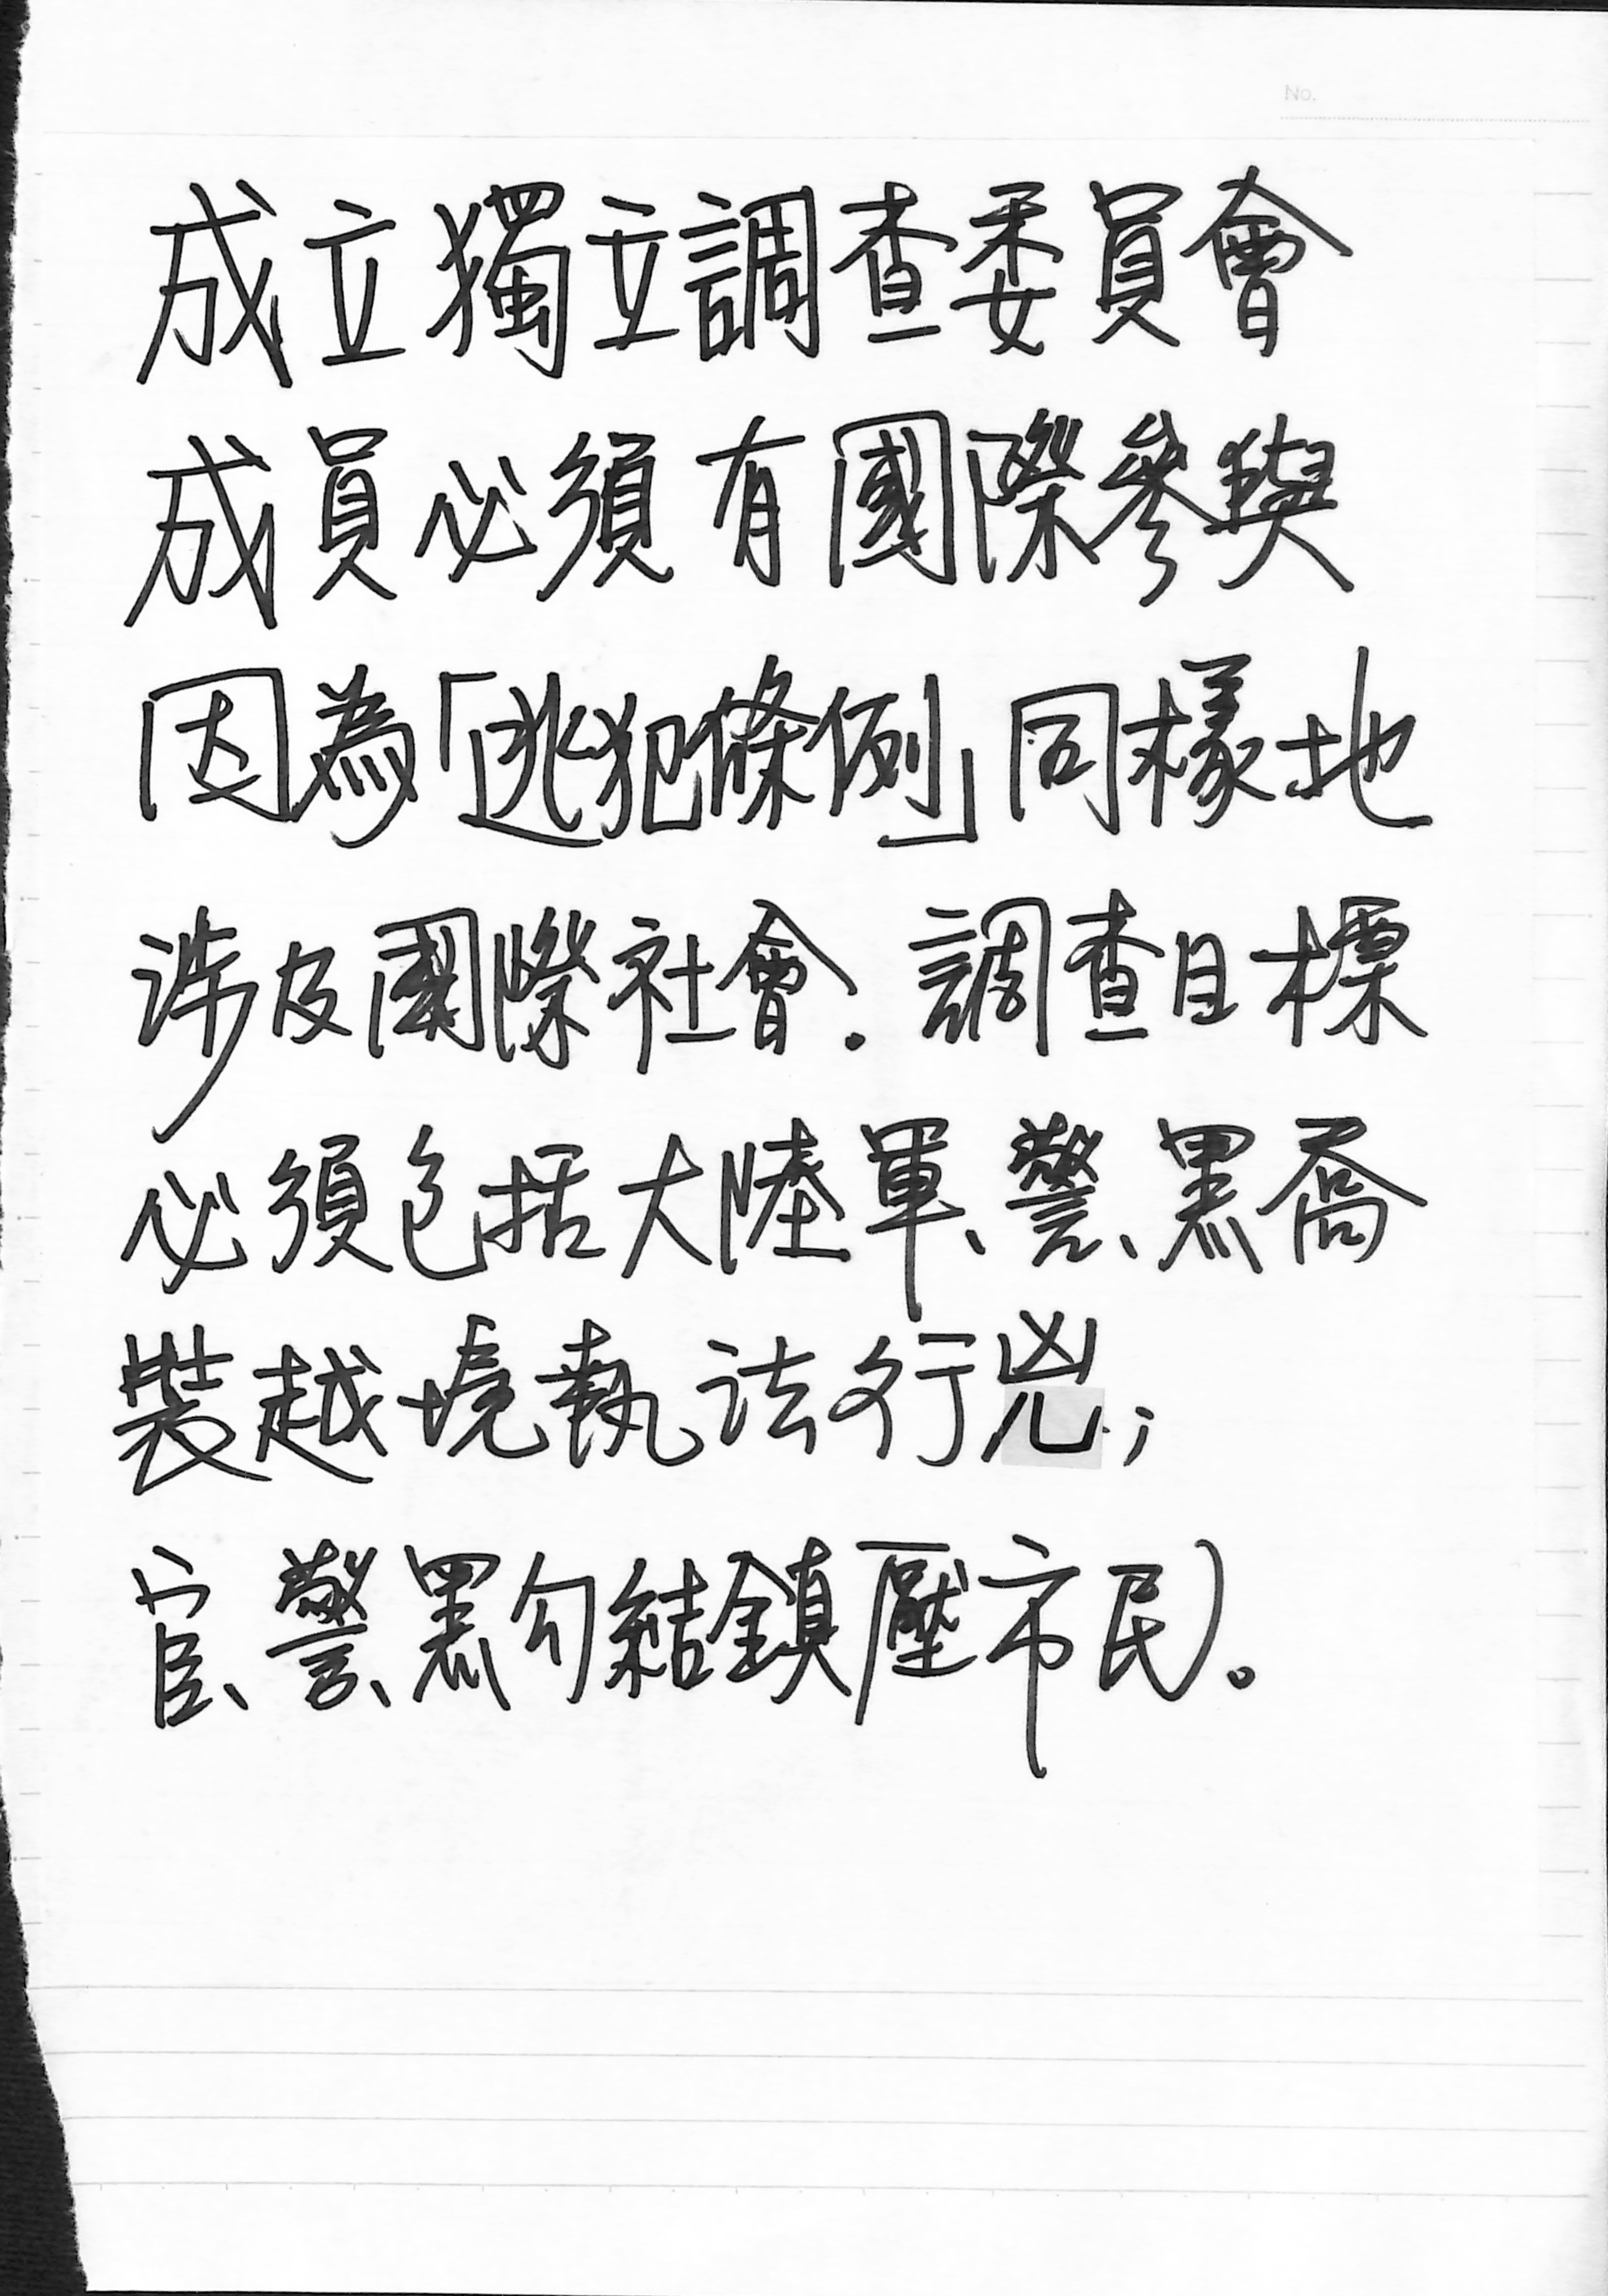 No.
成立獨立調查委員會
成員必須有國際參與
因為「逃犯條例」同樣地
涉及國際社會．調查目標
必須包括大陸軍、警、黑喬
裝越境執法行兇；
官、警、黑勾結鎮壓市民）。